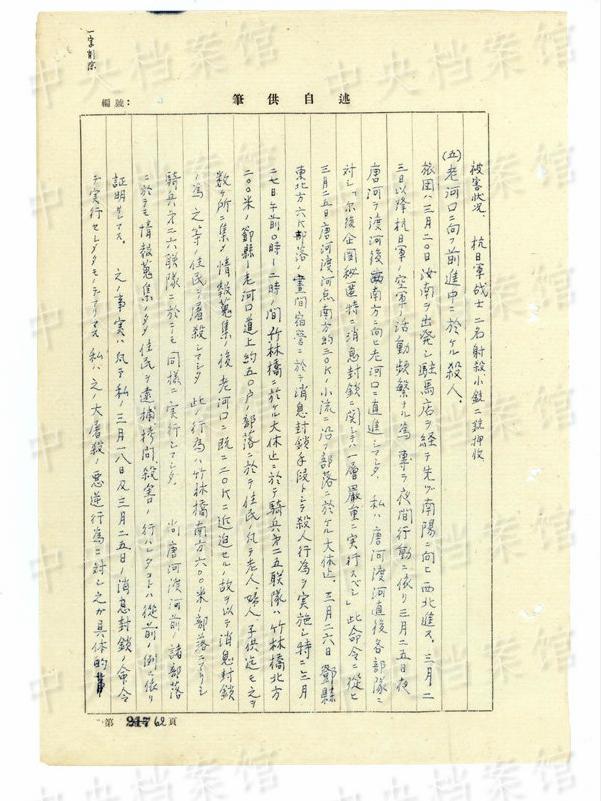 一字削除
述自供筆
編號：
被害状況、 抗日軍战士二名射殺小銃二銃押收
(五)老河口ニ向フ前進中ニ於ケル殺人、
旅団ハ三月二〇日汝南ヲ出発シ駐馬店ヲ経テ先ヅ南陽ニ向ヒ西北進ス、三月二
三日以降抗日軍ノ空軍ノ活動頻繁ナル為専ラ夜間行動ニ依リ三月二五日夜
唐河ヲ渡河後 南方ニ向ヒ老河口ニ直進シマシタ 私ハ唐河渡河直後各部隊ニ
対シ「尓後企図秘匿特ニ消息封鎖ニ関シテハ一層厳重ニ実行スベシ」此命令ニ従ヒ
三月二五日唐河渡河点南方約二〇K小流ニ沿フ部落ニ於ケル大休止、三月二六日鄧縣
東北方六K部落ノ晝間宿営ニ於テ消息封鎖手段トシテ殺人行為ヲ実施シ特ニ三月
二七日午前〇時ー二時ノ間竹林橋ニ於ケル大休止ニ於テ騎兵第二五聯隊ハ竹林橋北方
二〇〇米ノ鄧縣ー老河口道上約五〇戸ノ部落ニ於テ住民ノ凡テ老人婦人子供迄モ之ヲ
数ヶ所ニ集メ情報蒐集ノ後老河口ニ既ニ二〇Kニ近迫セルノ故ヲ以テ消息封鎖
ノ為之等ノ住民ヲ屠殺シマシタ 此ノ行為ハ竹林橋南方六〇〇米ノ部落ニアリシ
騎兵第二六聯隊ニ於テモ同様ニ実行シマシタ、 尚唐河渡河前ノ諸部落
ニ於テモ情報蒐集ノタメ住民ヲ逮捕拷問殺害ノ行ハレタコトハ従前ノ例ニ依リ
証明出マス、 之ノ事実ハ凡テ私ノ三月一八日及三月二五日ノ消息封鎖ノ命令
デ実行セシメタモノデアリマス 私ハ之ノ大屠殺ノ悪逆行為ニ対シ之ガ具体的
第 62 頁